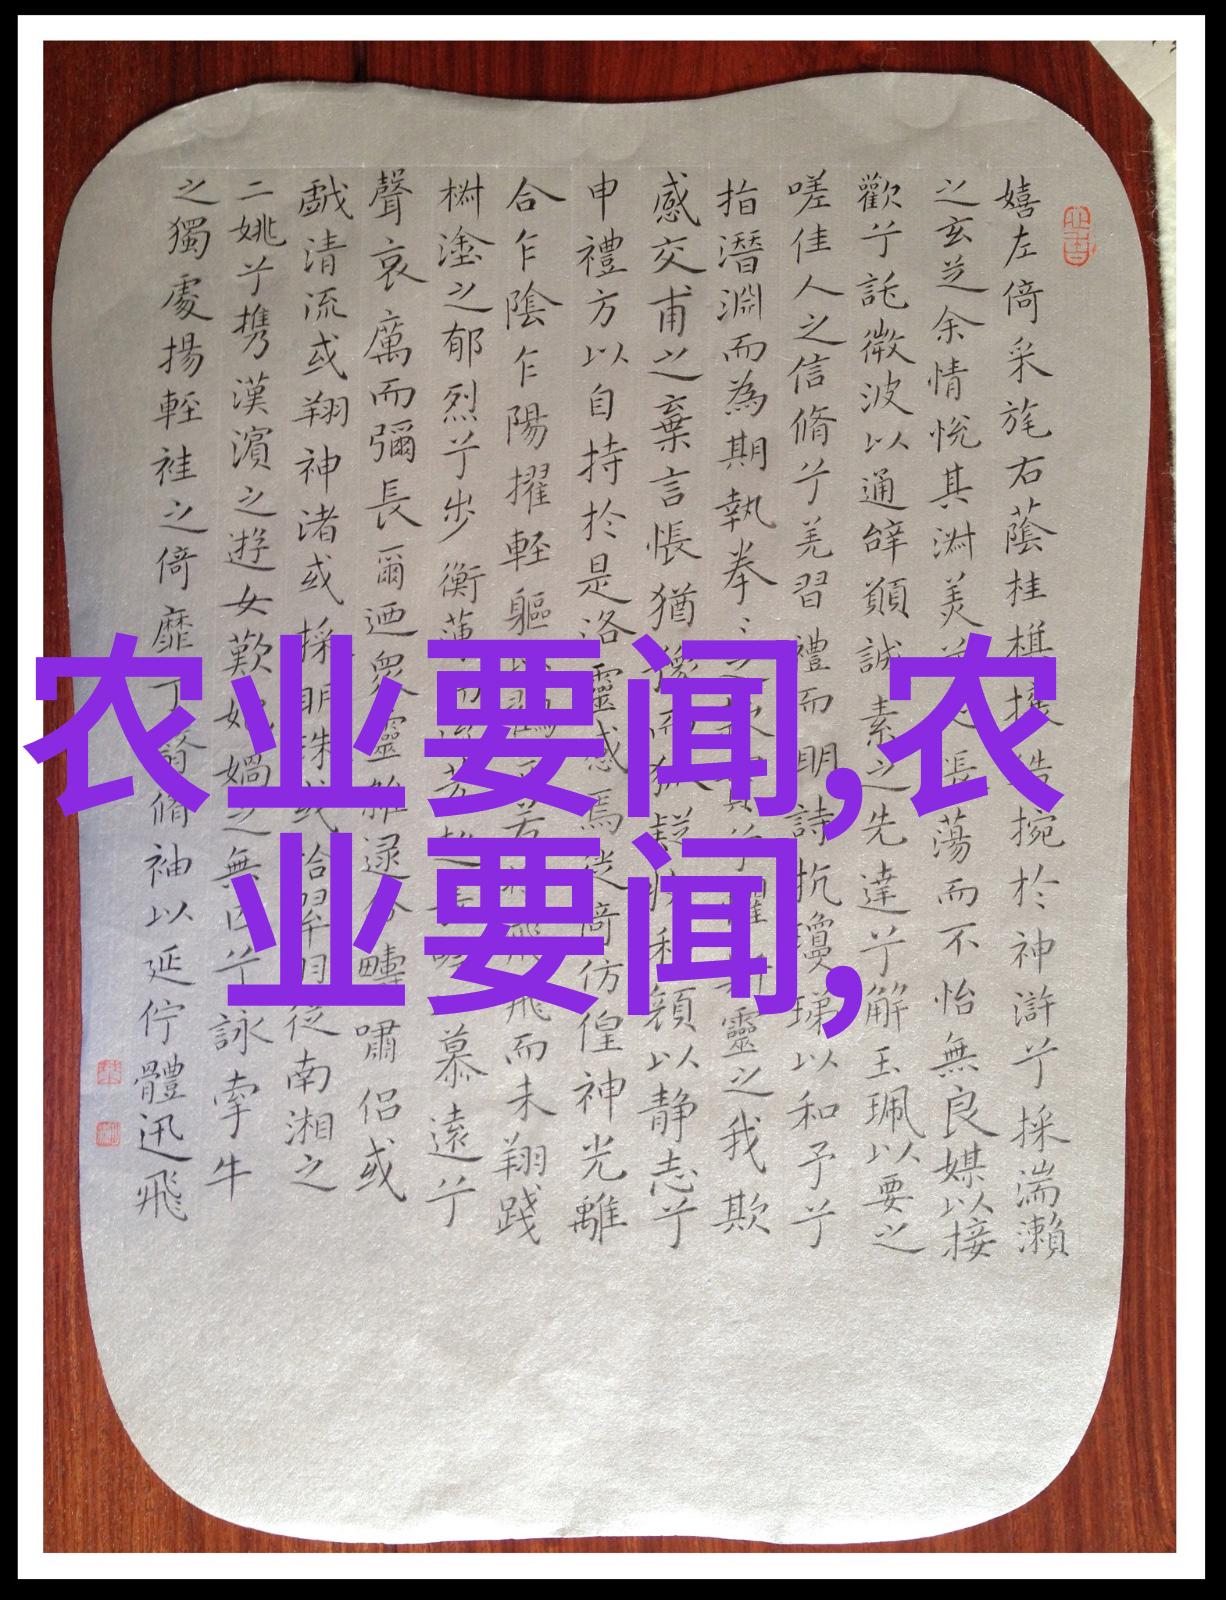 嬉左倚采旄右蔭桂旗攘捥於神滸兮採湍瀨
之玄芝余情悅其淑美蕩而不怡無良媒以接
歡兮託微波以通辭願誠素之先達兮解玉珮以要之
嗟佳人之信脩兮羌習禮而明詩抗瓊珶以和予兮
指潛淵而為期執拳靈之我欺
感交甫之棄言悵猶豫而狐疑收和顏以静志兮
申禮方以自持於是洛靈感焉徙倚仿偟神光離
合乍陰乍陽擢輕軀若飛而未翔踐
椒塗之郁烈兮步衡薄芳超慕遠兮
聲哀厲而彌長爾迺眾靈雜逯命疇嘯侶或
戲清流或翔神渚或採明珠或拾翠羽從南湘之
二姚兮攜漢濱之遊女歎媧之無匹兮詠牽牛
之獨處揚輕袿之倚靡兮翳脩袖以延佇體迅飛
农业要闻,农
业要闻,